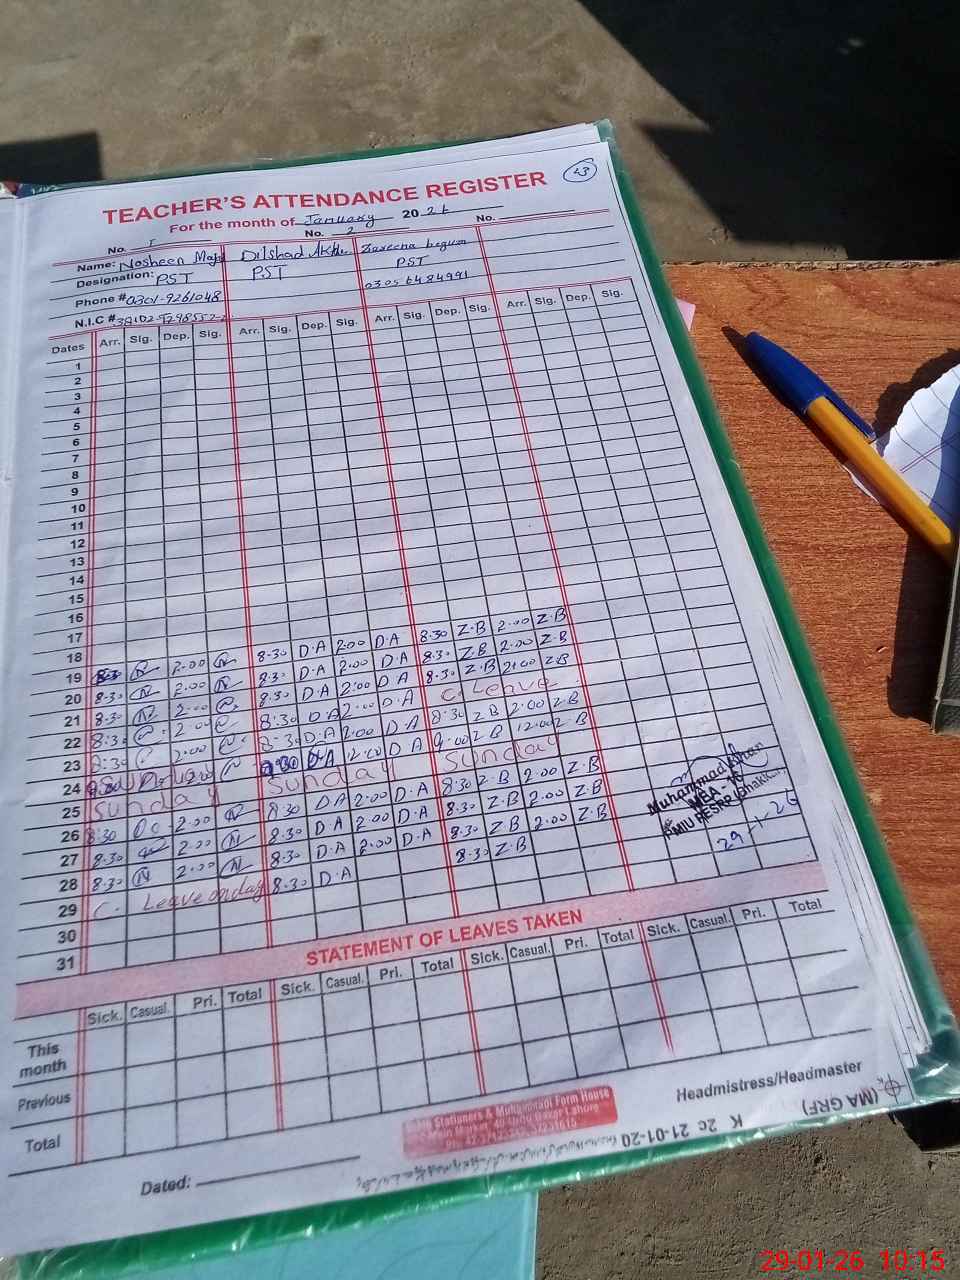 23
TEACHER'S ATTENDANCE REGISTER
For the month of January 2026
No. 1 No. 2 No.
Name: Nosheen Dilshad Zareena begum
Designation: PST PST PST
Phone # 0301-9261048 03056484991
N.I.C #
Dates Arr. Sig. Dep. Sig. Arr. Sig. Dep. Sig. Arr. Sig. Dep. Sig. Arr. Sig. Dep. Sig.
1
2
3
4
5
6
7
8
9
10
11
12
13
14
15
16
17
18
19 8:30 N 2:00 N 8:30 D.A 2:00 D.A 8:30 Z.B 2:00 Z.B
20 8:30 N 2:00 N 8:30 D.A 2:00 D.A 8:30 Z.B 2:00 Z.B
21 8:30 N 2:00 N 8:30 D.A 2:00 D.A 8:30 Z.B 2:00 Z.B
22 8:30 2:00 8:30 D.A 2:00 D.A C. Leave
23 8:30 2:00 8:30 D.A 2:00 D.A 8:30 Z.B 2:00 Z.B
24 D.A 12:00 D.A 9:00 Z.B 12:00 Z.B
25 Sunday Sunday Sunday
26 8:30 2:00 N 8:30 D.A 2:00 D.A 8:30 Z.B 2:00 Z.B
27 8:30 2:00 N 8:30 D.A 2:00 D.A 8:30 Z.B 2:00 Z.B
28 8:30 N 2:00 N 8:30 D.A 2:00 D.A 8:30 Z.B 2:00 Z.B
29 C. Leave on day 8:30 D.A 8:30 Z.B
30
31
Muhammad Khan
MEA - 16
PMIU PESRP Bhakkar
29-1-26
STATEMENT OF LEAVES TAKEN
Sick. Casual. Pri. Total Sick. Casual. Pri. Total Sick. Casual. Pri. Total Sick. Casual. Pri. Total
This month
Previous
Total
Headmistress/Headmaster
Stationers & Muhammadi Form House
Dated:
(MA GRF) K 2c 21-01-20
29-01-26 10:15